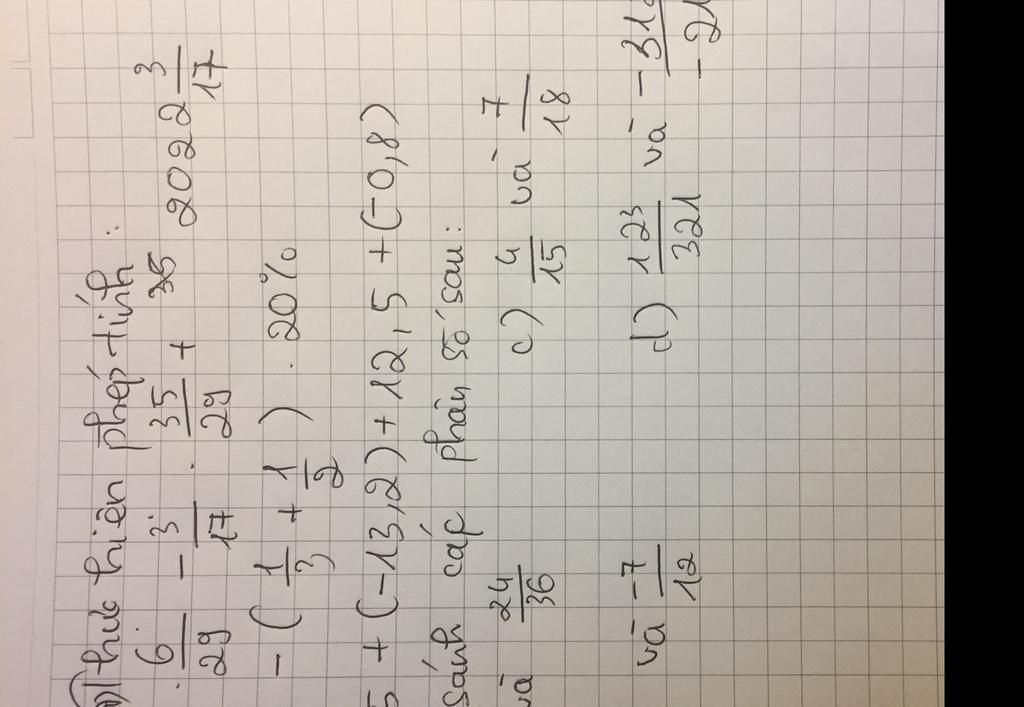 thực hiên phép tính:
. 6/29 - 3/17 . 35/29 + 35 2022 3/17
- ( 1/3 + 1/2 ) . 20%
5 + (-13,2) + 12,5 + (-0,8)
sánh các phân số sau:
và 24/36 c) 4/15 và 7/18
và -7/12 d) 123/321 và